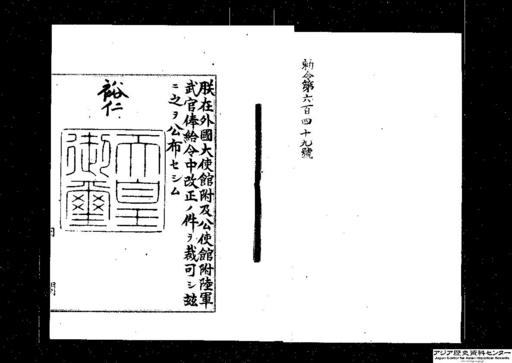 勅令第六百四十九號
朕在外國大使館附及公使館附陸軍
武官俸給令中改正ノ件ヲ裁可シ茲
ニ之ヲ公布セシム
裕仁
天皇
御璽
アジア歴史資料センター
Japan Center for Asian Historical Records